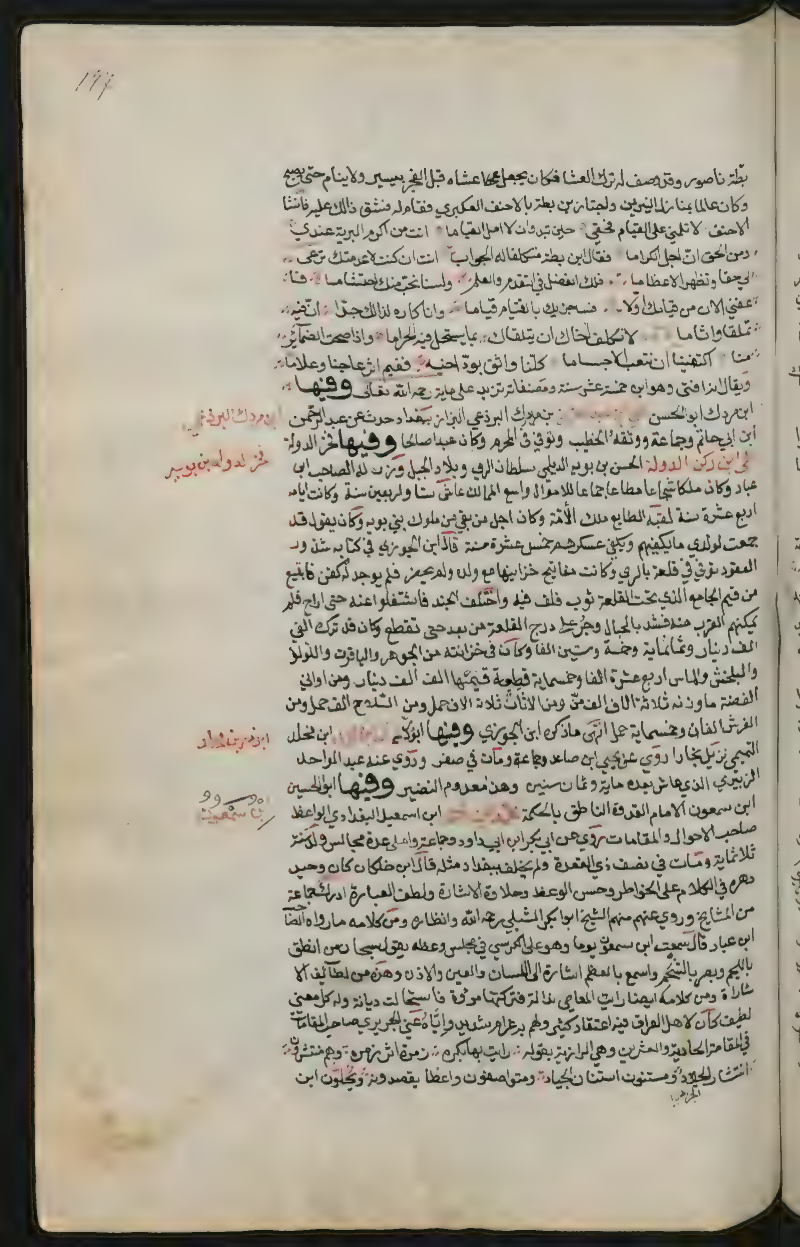 ١٩٧
بطة ناصور وقد وصف له ترك العشا فكان يجعل عشاه قبل الفجر بيسير ولا ينام حتى يصبح
وكان عالما بمنازل النيرين واجتاز بن بطة بالاحنف العكبري فقام له فشق ذالك عليه فانشا
الاحنف لا تلمني على القيام فحقي حين تبدو ان لا امل القياما انت من اكرم البرية عندي
ومن الحق ان اجل الكراما فقال ابن بطة متكلفا له الجواب انت ان كنت لا عدمتك ترعى
لي حقا وتظهر الاعظاما فلك الفضل في التقدم والعلم ولسنا نحب منك احتشاما
فاعفني الان من قيامك اولا فسنجزيك بالقيام قياما وانا كاره لذالك جدا ان فيه
تملقا واثاما لا تكلف اخاك ان يتلقاك بما يستحل فيه الحراما واذا صحت الضمائر
منا اكتفينا ان نتعب الاجساما كلنا واثق بود اخيه ففيم انزعاجنا وعلاما
ويقال انه افتى وهو ابن خمسة عشر سنة ومصنفاته تزيد على ماية رحمه الله تعالى وفيها
ابن مردك ابو الحسن بن مردك البرذعي البزاز ببغداد حدث عن عبد الرحمن
ابن ابي حاتم وجماعة ووثقه الخطيب وتوفي في المحرم وكان عبدا صالحا وفيها فخر الدولة
ابن ركن الدولة الحسن بن بويه الديلمي سلطان الري وبلاد الجبل وزر له الصاحب ابن
عباد وكان ملكا شجاعا مطاعا جماعا للاموال واسع الممالك عاش ستا واربعين سنة وكانت ايامه
اربع عشرة سنة لقبه الطايع ملك الأمة وكان اجل من بقي من ملوك بني بويه وكان يقول قد
جمعت لولدي ما يكفيهم ويكفي عسكرهم خمس عشرة سنة قال ابن الجوزي في كتابه شذور
العقود توفي في قلعة بالري وكانت مفاتيح خزاينها مع ولده ولم يحضر فلم يوجد له كفن فابتيع
من قيم الجامع الذي تحت القلعة ثوب فلف فيه واختلف الجند فاشتغلوا عنه حتى اراح فلم
يمكنهم القرب منه فشد بالحبال وجر على درج القلعة من بعد حتى تقطع وكان قد ترك الفي
الف دينار وثمانماية وخمسة وستين الفا وكان في خزانته من الجوهر والياقوت واللولو
والبلخش والماس اربع عشرة الفا وخمسماية قطعة قيمتها الف الف دينار ومن اواني
الفضة ما وزنه ثلاثة الاف الف من ومن الاثاث ثلاثة الاف حمل ومن السلاح الف حمل ومن
الفرش الفان وخمسماية حمل انتهى ما ذكره ابن الجوزي وفيها ابن محلد
التميمي نزيل بخارا روى عن يحيى ابن صاعد وجماعة ومات في صفر وروى عنه عبد الواحد
الزبيري الذي عاش بعده ماية وثمان سنين وهذا معدوم النضير وفيها ابو الحسين
ابن سمعون الامام القدوة الناطق بالحكمة ابن اسمعيل البغدادي الواعظ
صاحب الاحوال والمقامات روى عن ابي بكر ابن ابي داود وجماعة واملى عدة مجالس ولد سنة
ثلاثماية ومات في نصف ذي القعدة ولم يخلف ببغداد مثله قال ابن خلكان كان وحيد
دهره في الكلام على الخواطر وحسن الوعظ وحلاوة الاشارة ولطف العبارة ادرك جماعة
من المشايخ وروى عنهم منهم الشيخ ابو بكر الشبلي رحمه الله وانظاره ومن كلامه ما رواه الصاحب
ابن عباد قال سمعت ابن سمعون يوما وهو على الكرسي في مجلس وعظه يقول سبحان من انطق
باللحم وبصر بالشحم واسمع بالعظم اشارة الى اللسان والعين والاذن وهذه من لطائف الا
شارة ومن كلامه ايضا رايت المعاصي نذالة فتركتها مروة فاستحالت ديانة وله كل معنى
لطيف كان لاهل العراق فيه اعتقاد كثير ولهم به غرام شديد واياه عنى الحريري صاحب المقامات
في المقامة الحادية والعشرين وهي الرازية بقوله رايت بها بكرة زمرة اثر زمرة وهم منتشرون
انتشار الجراد ومستنون استنان الجياد ومتواصفون واعظا يقصدونه ويحلون ابن
ابن مردك البرذعي
فخر الدوله بن بويه
ابن سمعون